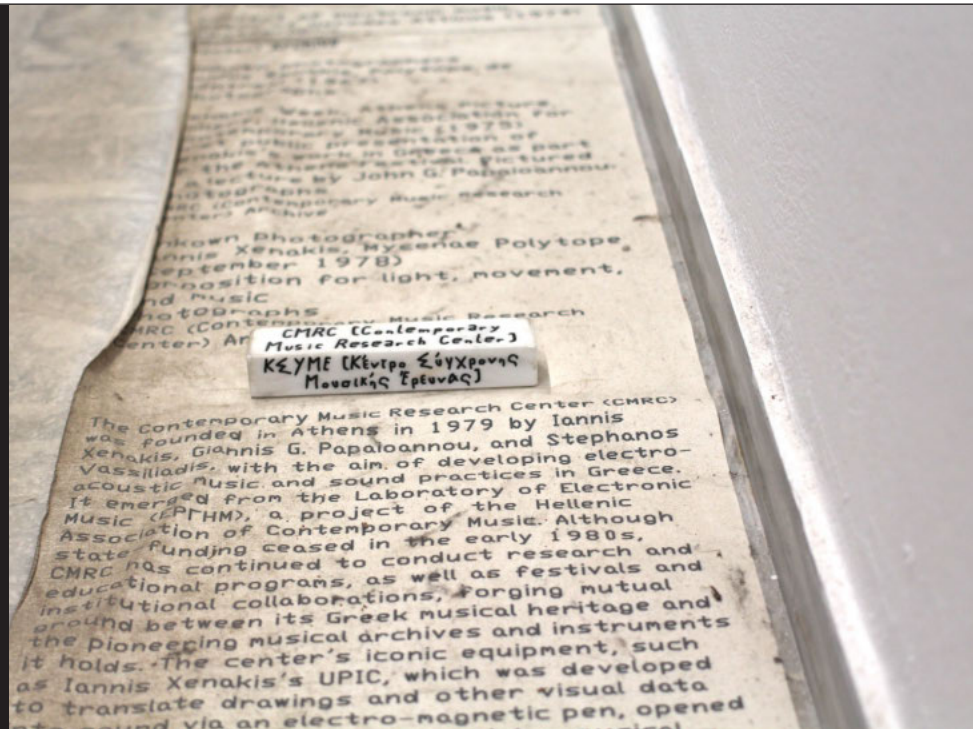 Athens Picture,
Hellenic Association for
Music (1979)
public presentation of
work in Greece as part
the Athens Festival. Pictured
a lecture by John G. Papaioannou.
(Contemporary Music Research
Archive
Photographer
Xenakis, Mycenae Polytope,
1978)
for light, movement,
music
(Contemporary Music Research
CMRC [Contemporary
Music Research Center]
ΚΣΥΜΕ [Κέντρο Σύγχρονης
Μουσικής Έρευνας]
The Contemporary Music Research Center (CMRC)
was founded in Athens in 1979 by Iannis
Xenakis, Giannis G. Papaioannou, and Stephanos
Vassiliadis, with the aim of developing electro-
acoustic music and sound practices in Greece.
It emerged from the Laboratory of Electronic
Music (ΕΡΓΗΜ), a project of the Hellenic
Association of Contemporary Music. Although
state funding ceased in the early 1980s,
CMRC has continued to conduct research and
educational programs, as well as festivals and
institutional collaborations, forging mutual
ground between its Greek musical heritage and
the pioneering musical archives and instruments
it holds. The center's iconic equipment, such
as Iannis Xenakis's UPIC, which was developed
to translate drawings and other visual data
sound via an electro-magnetic pen, opened